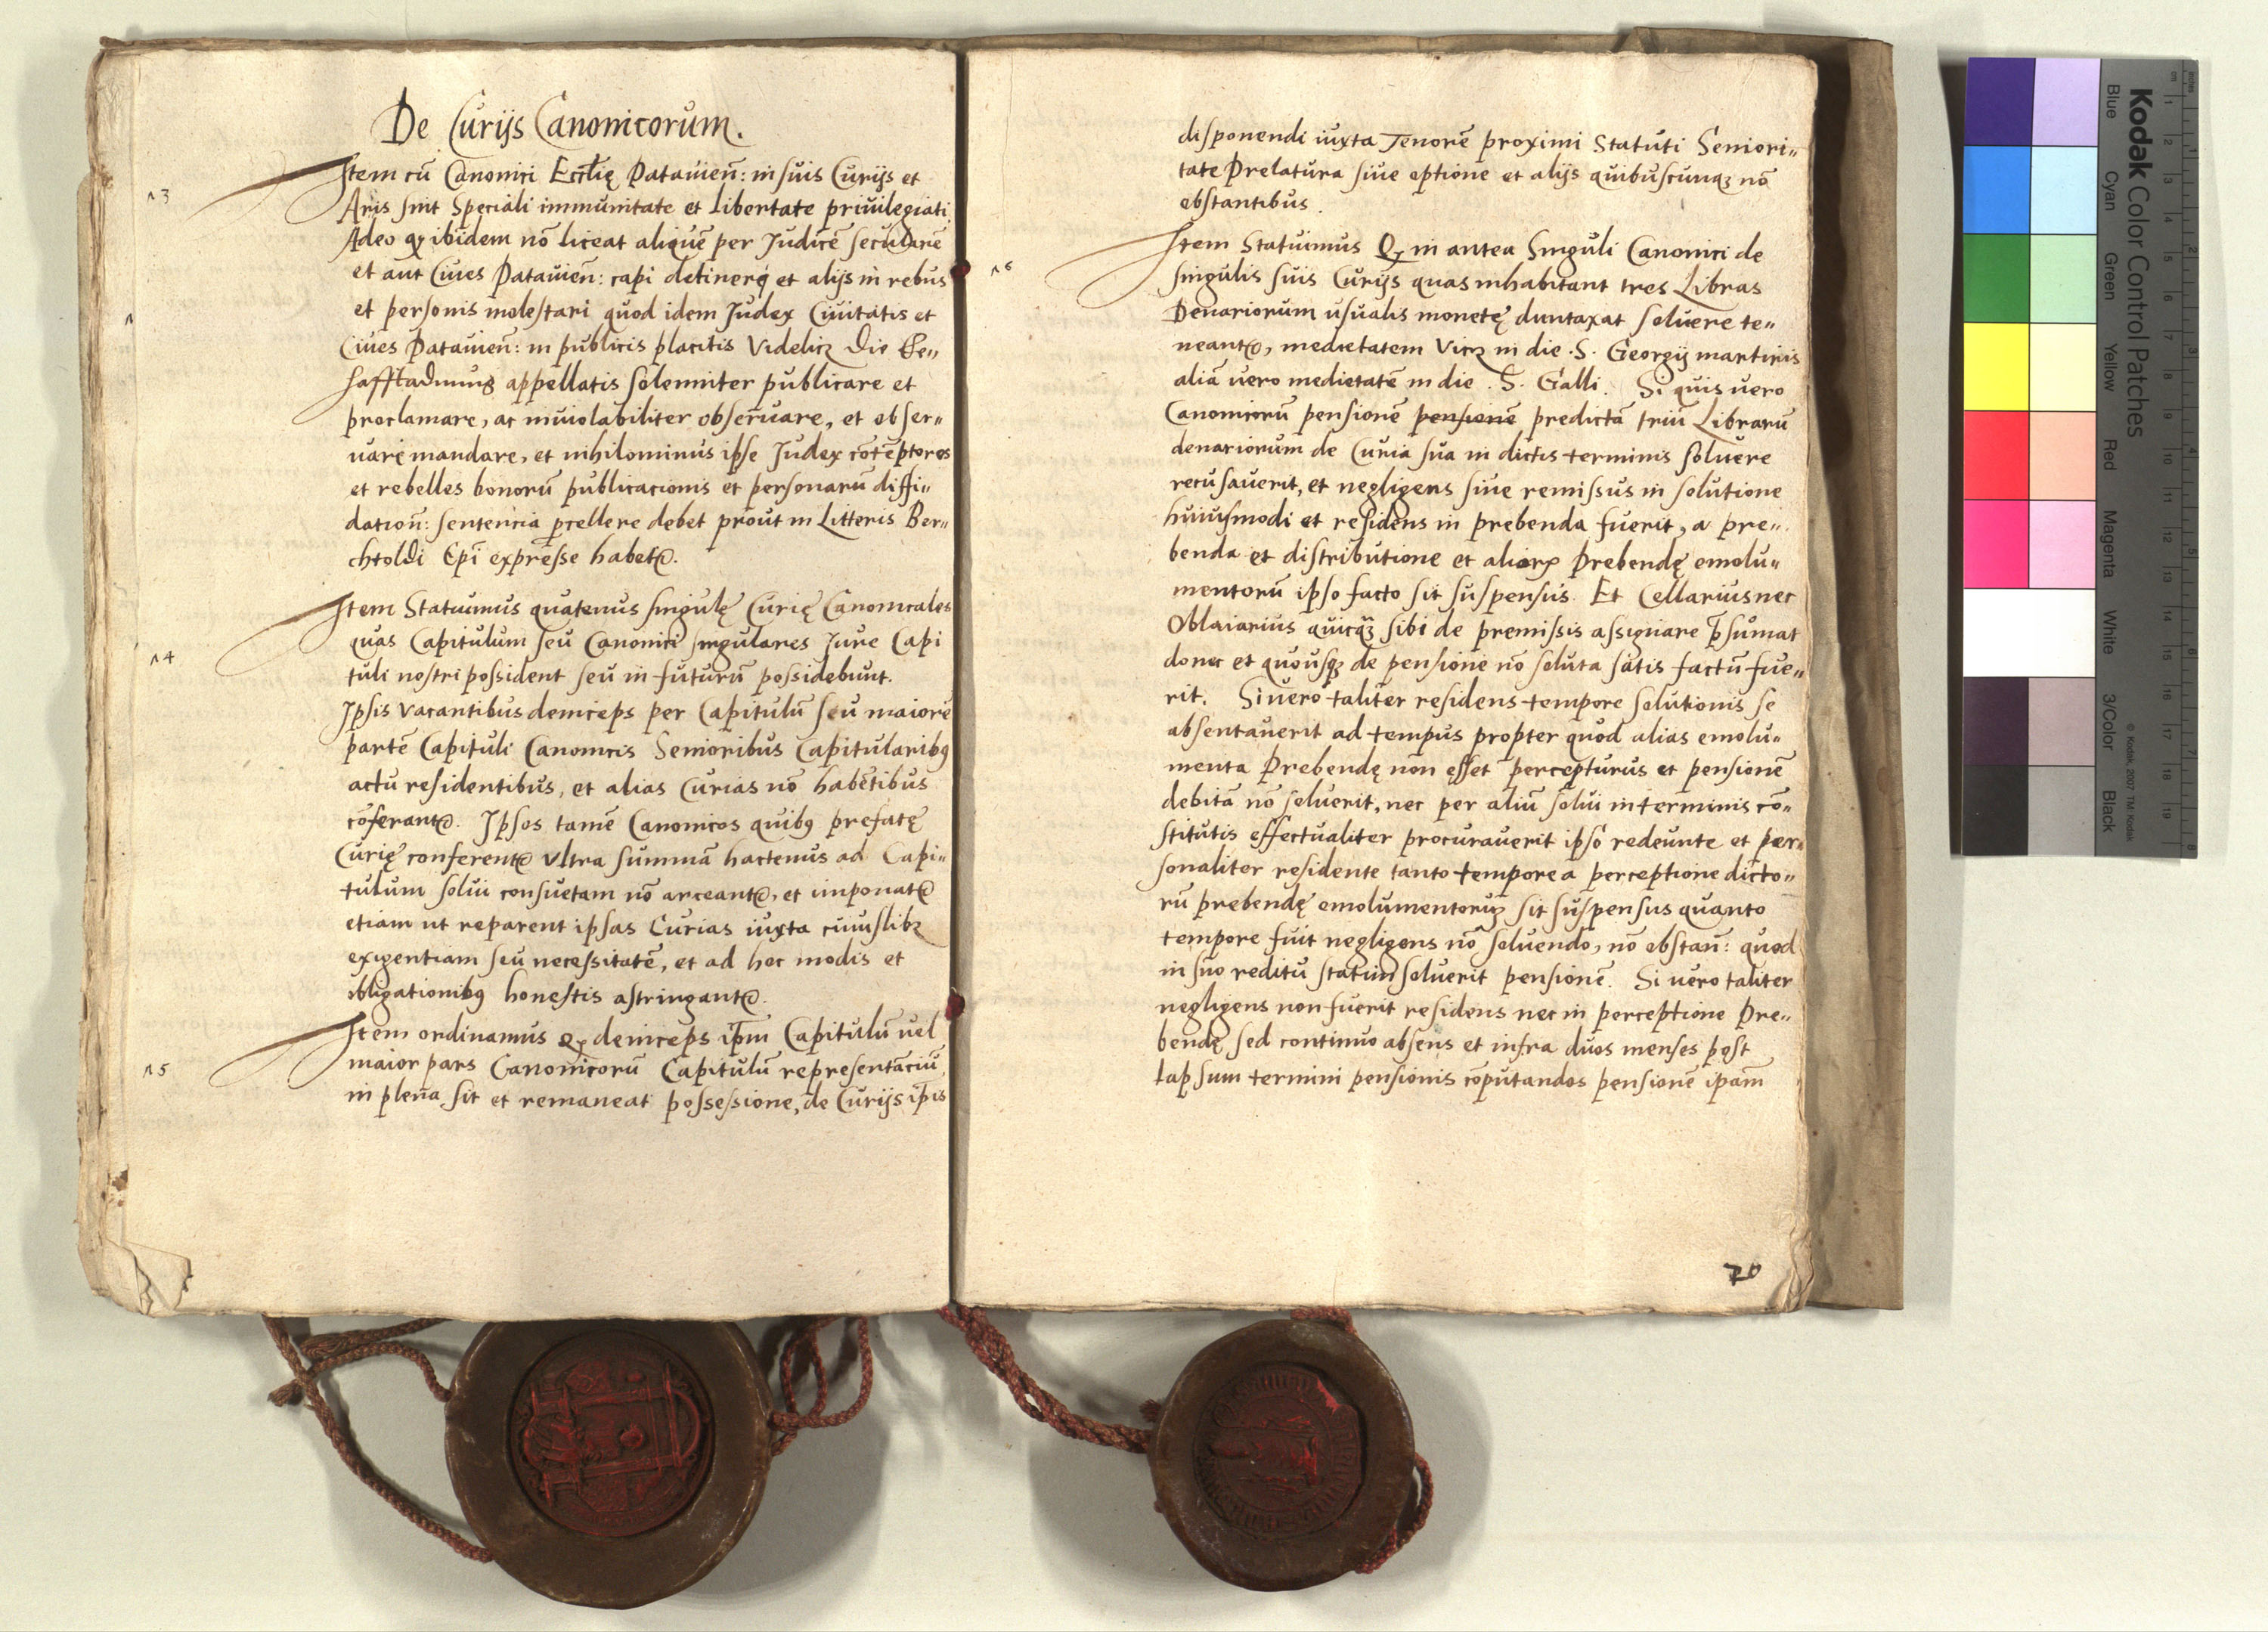 De Curijs Canonicorum.
13
Item cū Canonici Eccłię Patauieñ: in suis Curijs et
Aris sint Speciali immunitate et libertate priuilegiati,
Adeo qz ibidem nō liceat aliquē per Judicē secularē
et aut Ciues Patauieñ: capi detinerę et alijs in rebus
et personis molestari quod idem Judex Ciuitatis et
Ciues Patauieñ: in publicis placitis Videlicz Die
appellatis solenniter publicare et
proclamare, ac inuiolabiliter obseruare, et obser„
uarę mandare, et nihilominus ipse Judex cōtēptores
et rebelles bonorū publicacionis et personarū diffi„
datioñ: sentencia pcellere debet prout in Litteris Ber„
chtoldi Epī expresse habetr.
14
Item Statuimus quatenus singulę Curię Canonicales
quas Capitulum seu Canonici singulares Jure Capi
tuli nostri possident seu in futurū possidebunt.
Ipsis vacantibus deinceps per Capitulū seu maiorē
partē Capituli Canonicis Senioribus Capitularibꝰ
actu residentibus, et alias Curias nō habētibus
cōferantr. Ipsos tamē Canonicos quibꝰ prefatę
Curię conferentr vltra summā hactenus ad Capi„
tulum solui consuetam nō arceantr, et imponatr
etiam ut reparent ipsas Curias iuxta cuiuslibz
exigentiam seu necessitatē, et ad hoc modis et
obligationibꝰ honestis astringantr.
15
Item ordinamus qz deinceps ipm Capitulū uel
maior pars Canonicorū Capitulū representanciū,
in plena sit et remaneat possessione, de Curijs ipīs
disponendi iuxta Tenorē proximi Statuti Seniori„
tate Prelatura siue optione et alijs quibuscunqz nō
obstantibus.
16
Item Statuimus Qz in antea Singuli Canonici de
singulis suis Curijs quas inhabitant tres Libras
Denariorum usualis monetę duntaxat soluere te„
neantr, medietatem Vicz in die .S. Georgij martiris
aliā vero medietatē in die .S. Galli. Si quis vero
Canonicorū pensionē pensionē predictā triū Librarū
denariorum de Curia sua in dictis terminis soluere
recusauerit, et negligens siue remissus in solutione
huiusmodi et residens in prebenda fuerit, a pre„
benda et distributione et aliorꝝ Prebendę emolu„
mentorū ipso facto sit suspensus. Et Cellarius nec
Oblaiarius quicqz sibi de premissis assignare p̄sumat
donec et quousqz de pensione nō soluta satis factū fue„
rit. Si uero taliter residens tempore solutionis se
absentauerit ad tempus propter quod alias emolu„
menta Prebendę non esset percepturus et pensionē
debitā nō soluerit, nec per aliū solui in terminis cō„
stitutis effectualiter procurauerit ipso redeunte et per„
sonaliter residente tanto tempore a perceptione dicto„
rū prebendę emolumentorum sit suspensus quanto
tempore fuit negligens nō soluendo, nō obstañ: quod
in suo reditu statim soluerit pensionē. Si uero taliter
negligens non fuerit residens nec in perceptione Pre„
bendę, sed continuo absens et infra duos menses post
lapsum termini pensionis cōputandos pensionē ipam
70
Kodak Color Control Patches
Blue Cyan Green Yellow Red Magenta White 3/Color Black
© Kodak, 2007 TM: Kodak